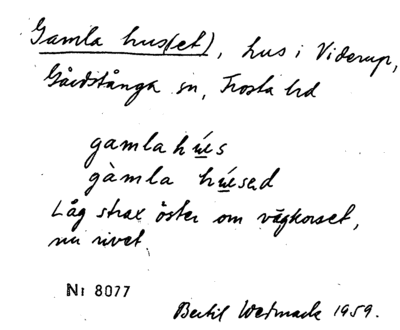 Gamla hus(et), hus i Viderup,
Gårdstånga sn, Frosta hd
gamla hús
gàmla húsed
Låg strax öster om vägkorset,
nu rivet.
Nr 8077
Bertil Wedmark 1959.